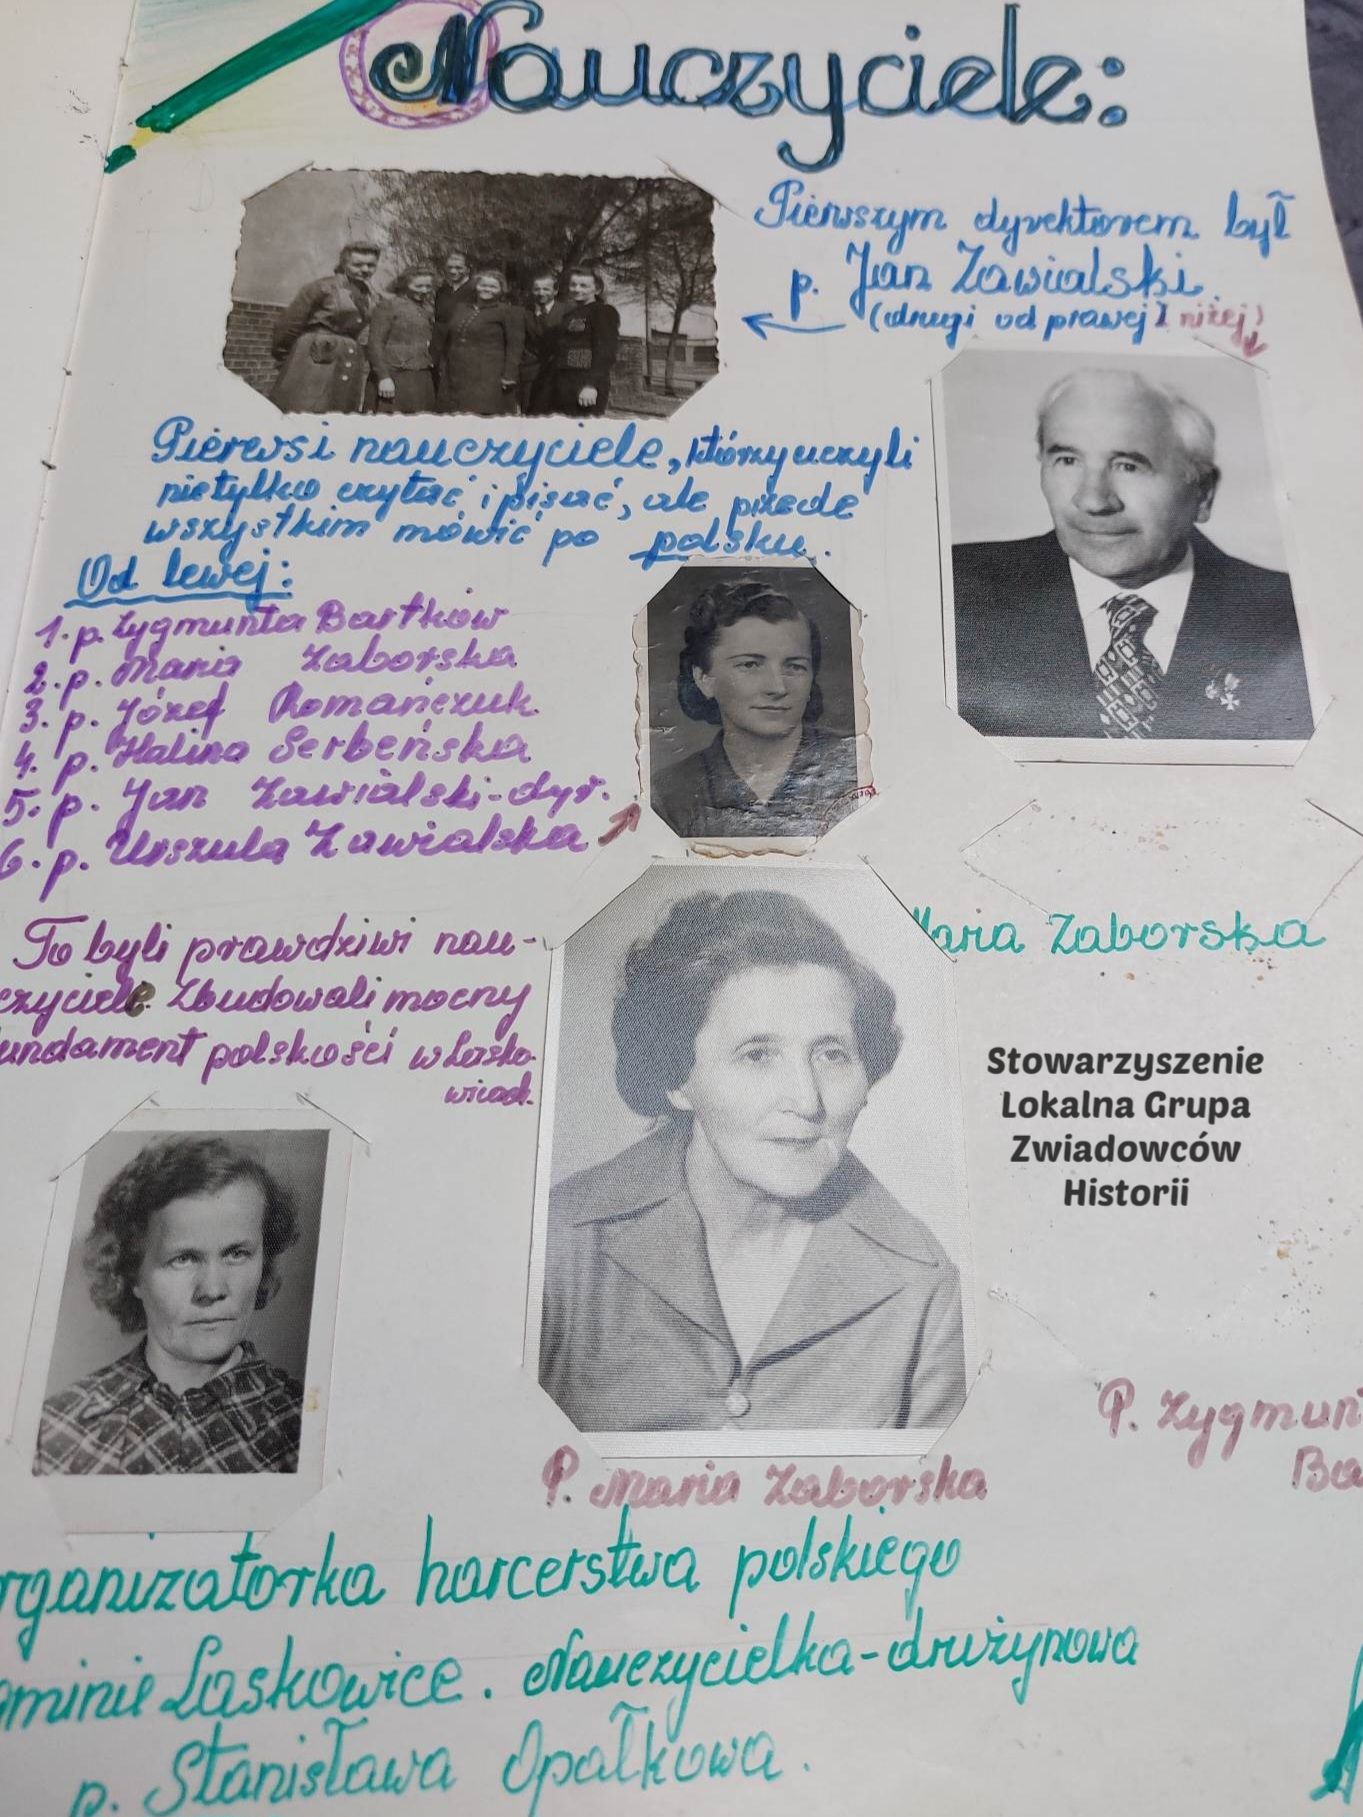 Nauczyciele:
Pierwszym dyrektorem był
p. Jan Zawialski
(drugi od prawej i niżej)
Pierwsi nauczyciele, którzy uczyli
nie tylko czytać i pisać, ale przede
wszystkim mówić po polsku.
Od lewej:
1. p. Zygmunta Bartków
2. p. Maria Zaborska
3. p. Józef Romańczuk
4. p. Halina Serbeńska
5. p. Jan Zawialski-dyr.
6. p. Urszula Zawialska
Maria Zaborska
To byli prawdziwi nau-
czyciele. Zbudowali mocny
undament polskości w Lasko-
wicach.
Stowarzyszenie
Lokalna Grupa
Zwiadowców
Historii
P. Maria Zaborska
P. Zygmun
Ba
rganizatorka harcerstwa polskiego
gminie Laskowice. Nauczycielka-drużynowa
p. Stanisława Opałkowa.